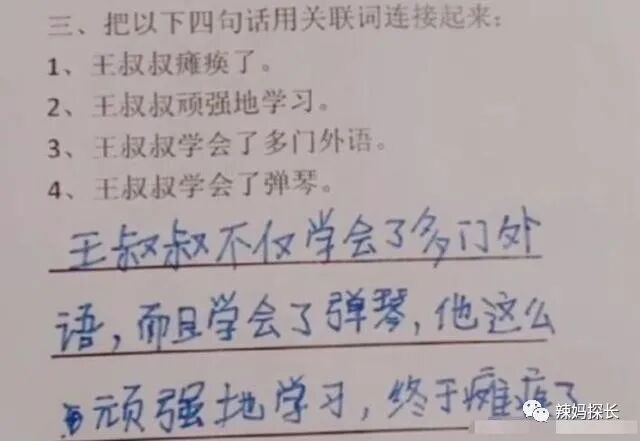 三、把以下四句话用关联词连接起来:
1、王叔叔瘫痪了。
2、王叔叔顽强地学习。
3、王叔叔学会了多门外语。
4、王叔叔学会了弹琴。
王叔叔不仅学会了多门外
语,而且学会了弹琴,他这么
顽强地学习,终于瘫痪了
辣妈探长